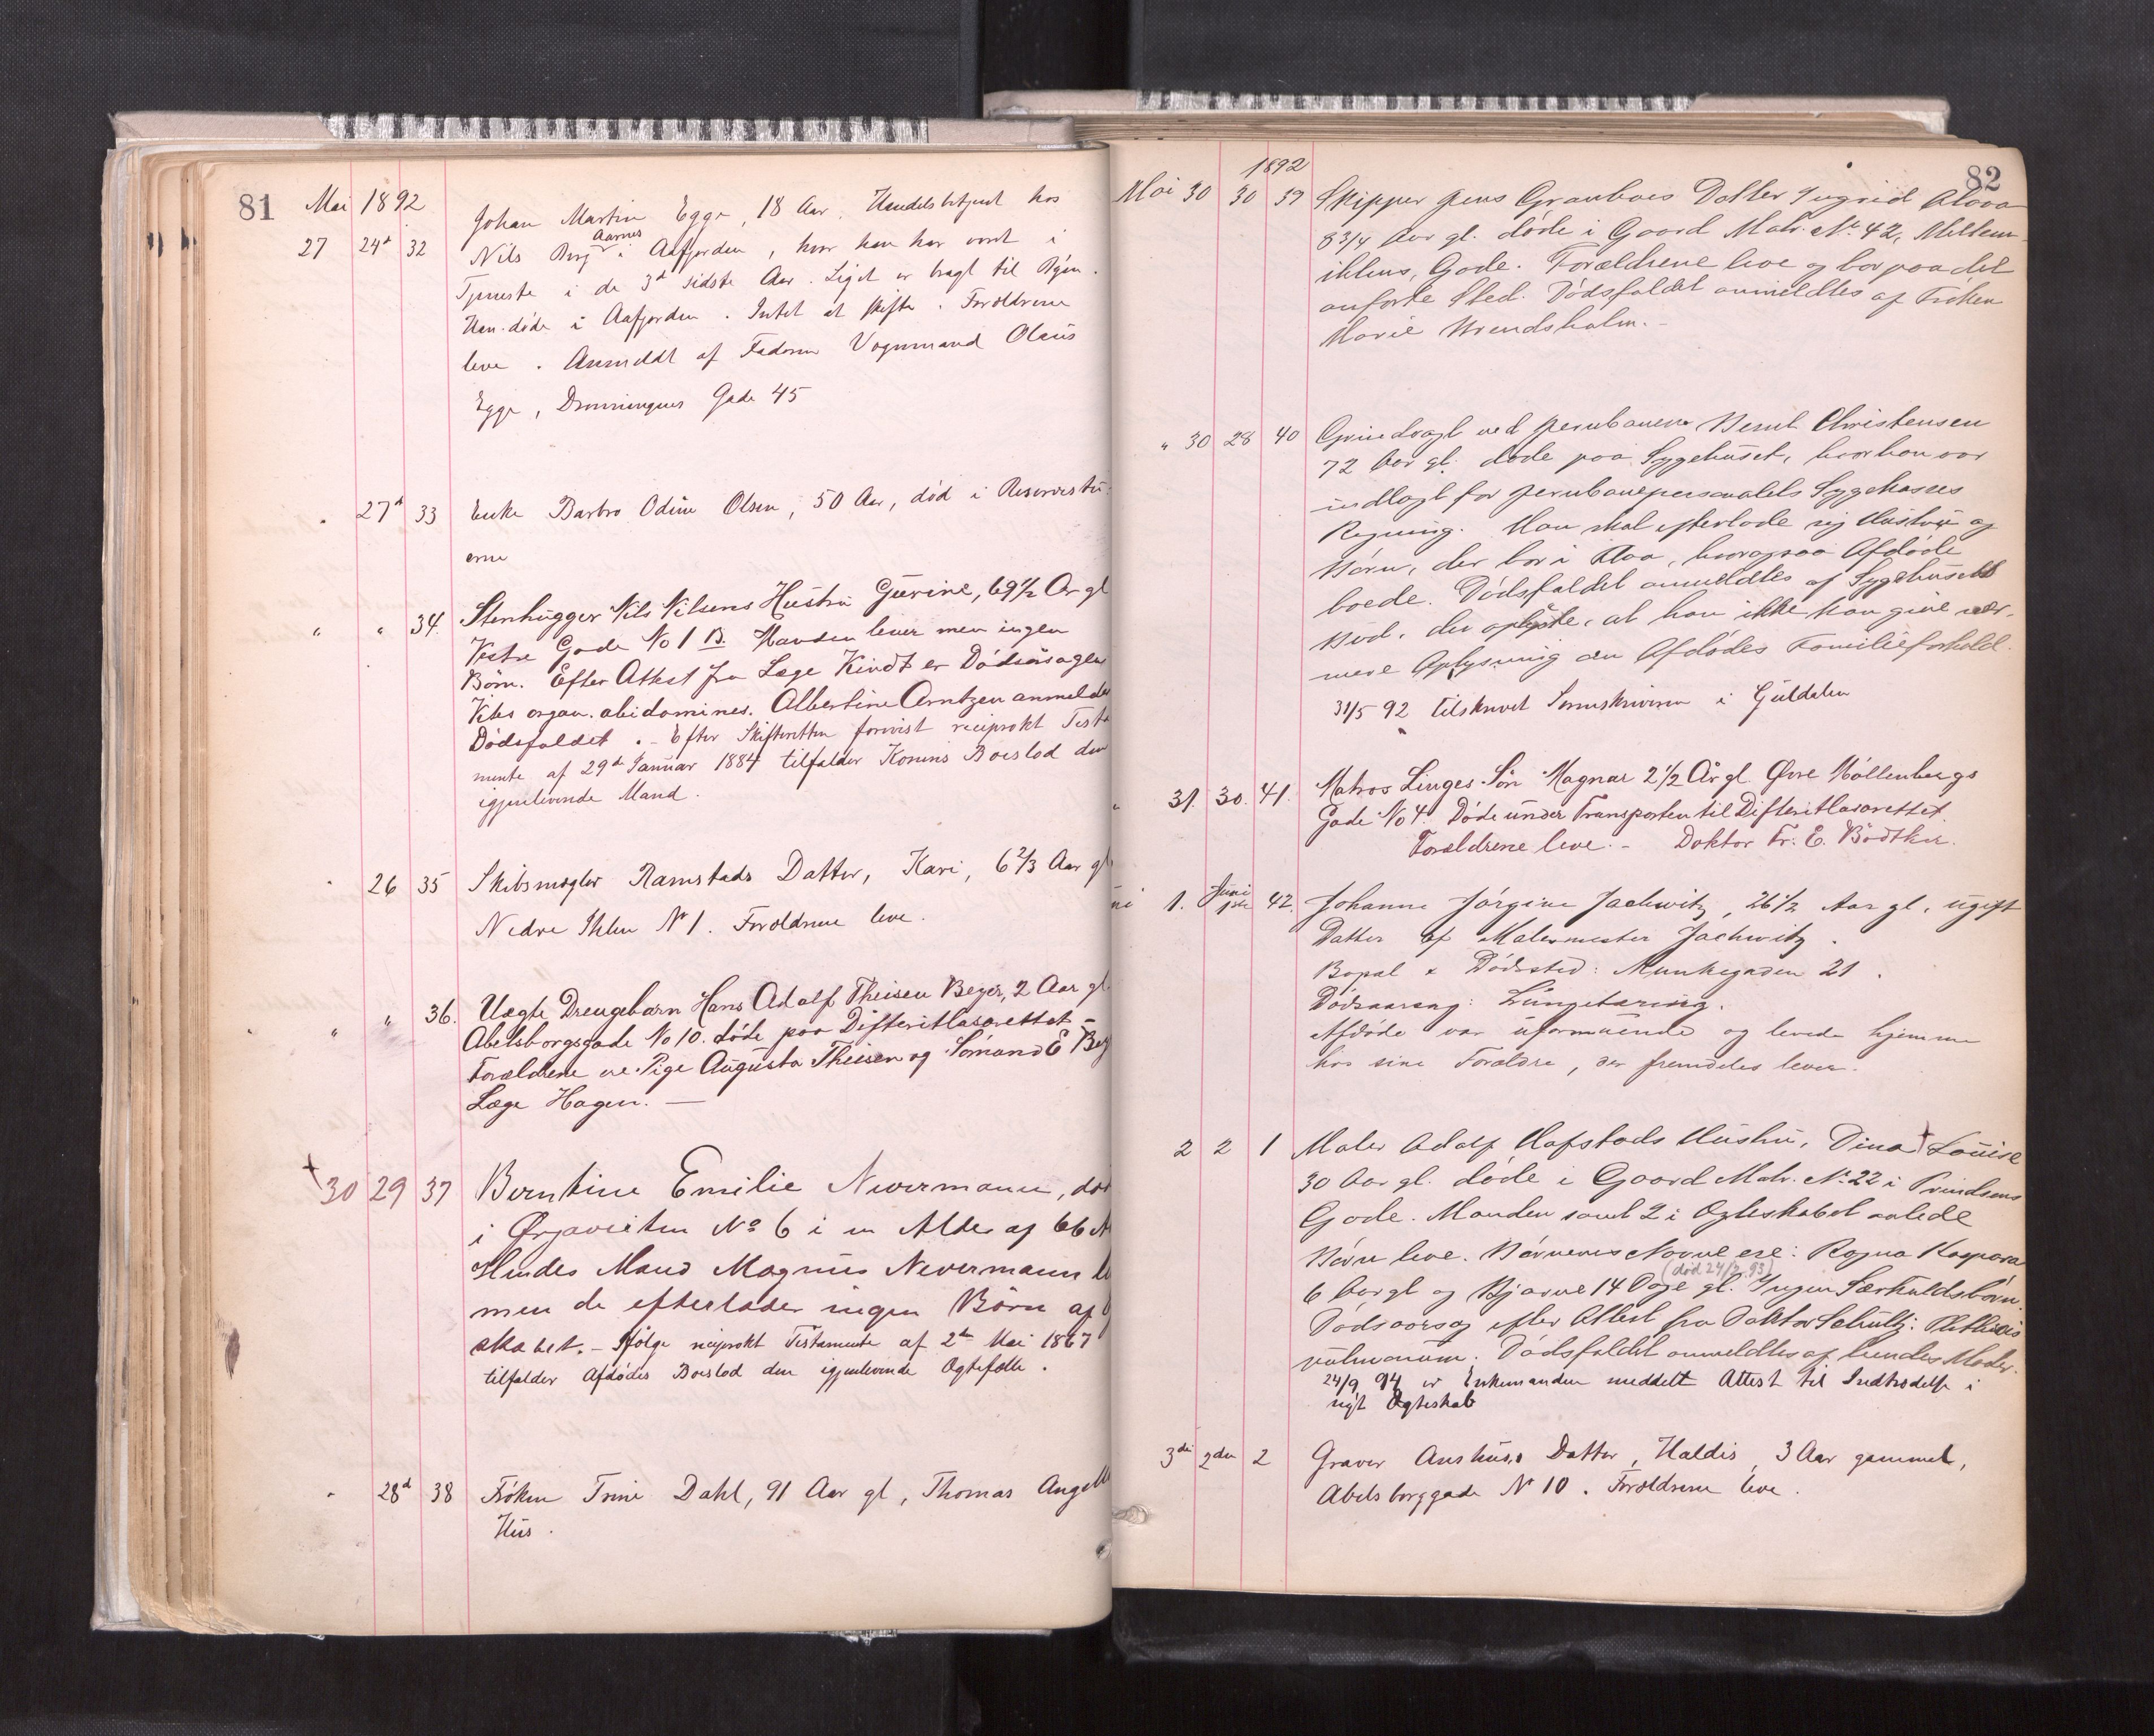 81
Mai 1892
27 24d 32 Johan Martin Egge, 18 Aar. Handelsbetjent hos
Nils Berg Aarnes i Aafjorden, hvor han har været i
Tjeneste i de 3d sidste Aar. Liget er bragt til Byen.
Han døde i Aafjorden. Intet at skifte. Forældrene
leve. Anmeldt af Faderen Vognmand Olaus
Egge, Dronningens Gade 45
" 27d 33 Enke Barbro Odine Olsen, 50 Aar, død i Reservestu-
erne
" " 34. Stenhugger Nils Nilsens Hustru Gurine, 69½ Ar gl
Vestre Gade No 1 B. Manden lever men ingen
Børn. Efter Attest fra Læge Kindt er Dødsårsagen
Vites organ. abidomines. Albertine Arntzen anmeldte
Dødsfaldet. - Efter Skifteretten forevist reciprokt Testa
mente af 29de Januar 1884 tilfalder Konens Boeslod den
igjenlevende Mand.
" 26 35 Skibsmægler Ramstads Datter, Kari, 6⅔ Aar gl
Nedre Ihlen No 1. Forældrene leve.
" " 36. Uægte Drengebarn Hans Adolf Theisen Beyer, 2 Aar gl.
Abelsborgsgade No 10. døde paa Difteritlasarettet -
Forældrene ere Pige Augusta Theisen og Sømand E Bey
Læge Hagen. —
30 29 37 Berntine Emilie Nevermann, død
i Ørjaveiten No 6 i en Alder af 66 A
Hendes Mand Magnus Nevermann le
men de efterlader ingen Børn af
skabet. - Ifølge reciprokt Testamente af 2den Mai 1867
tilfalder Afdødes Boeslod den igjenlevende Ægtefælle.
" 28d 38 Frøken Trine Dahl, 91 Aar gl, Thomas Angells
Hus.
82
1892
Mai 30 30 39 Skipper Jens Granboes Datter Ingrid Alvaa
8¾ Aar gl. døde i Gaard Matr. No. 42, Mellem-
ihlens, Gade. Forældrene leve og bor paa det
anførte Sted. Dødsfaldet anmeldtes af Frøken
Marie Brendsholm. -
" 30 28 40 Grindvagt ved Jernbanen Bernt Christensen
72 Aar gl. døde paa Sygehuset, hvor han var
indlagt for Jernbanepersonalets Sygekasses
Regning. Han skal efterlade sig Hustru og
Børn, der bor i Aaa, hvorogsaa Afdøde
boede. Dødsfaldet anmeldtes af Sygehusets
Bud, der oplyste, at han ikke kan give nær-
mere Oplysning om Afdødes Familieforhold.
31/5 92 tilskrevet Sorenskriveren i Guldalen
" 31. 30. 41. Matros Linges Søn Magnar 2½ År gl. Øvre Møllenbergs
Gade No 4. Døde under Transporten til Difteritlasarettet.
Forældrene leve. - Doktor Fr. E. Bødtker.
ni 1. Juni 1ste 42. Johanne Jørgine Jachwitz, 26½ Aar gl, ugift
Datter af Malermester Jachwitz.
Bopæl & Dødssted: Munkegaden 21.
Dødsaarsag: Lungetæring.
Afdøde var uformuende og levede hjemme
hos sine Forældre, der fremdeles lever.
2 2 1 Maler Adolf Hafstads Hustru, Dina Louise
30 Aar gl. døde i Gaard Matr. No. 22 i Prindsens
Gade. Manden samt 2 i Ægteskabet avlede
Børn leve. Børnenes Navne ere: Ragna Kaspara
6 Aar gl og Bjarne 14 Dage gl. (død 24/2 93) Ingen Særkuldsbørn.
Dødsaarsag efter Attest fra Doktor Schultz: Phthisis
pulmonum. Dødsfaldet anmeldtes af hendes Moder.
24/9 94 er Enkemanden meddelt Attest til Indtrædelse i
nyt Ægteskab
3die 2den 2 Graver Aushus's Datter, Haldis, 3 Aar gammel,
Abelsborggade No 10. Forældrene leve.